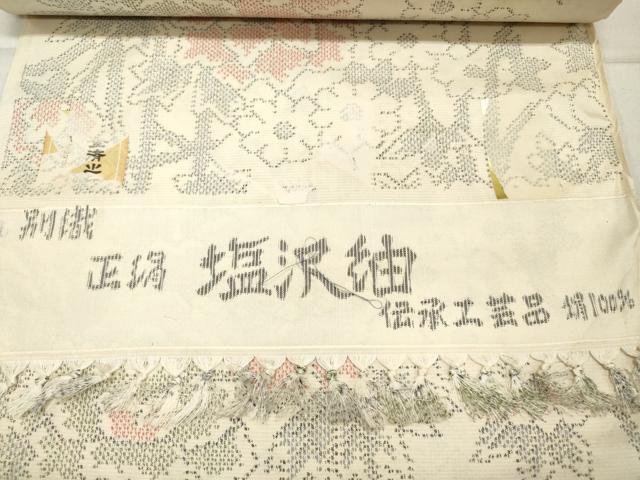 別織
正絹 塩沢紬
伝承工芸品 絹100%